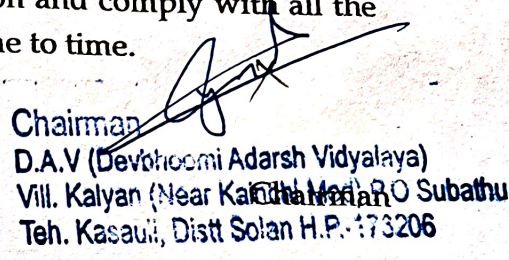 on and comply with all the
e to time.
Chairman
D.A.V (Devbhoomi Adarsh Vidyalaya)
Vill. Kalyan (Near PO Subathu
Chairman
Teh. Kasauli, Distt Solan H.P.-173206